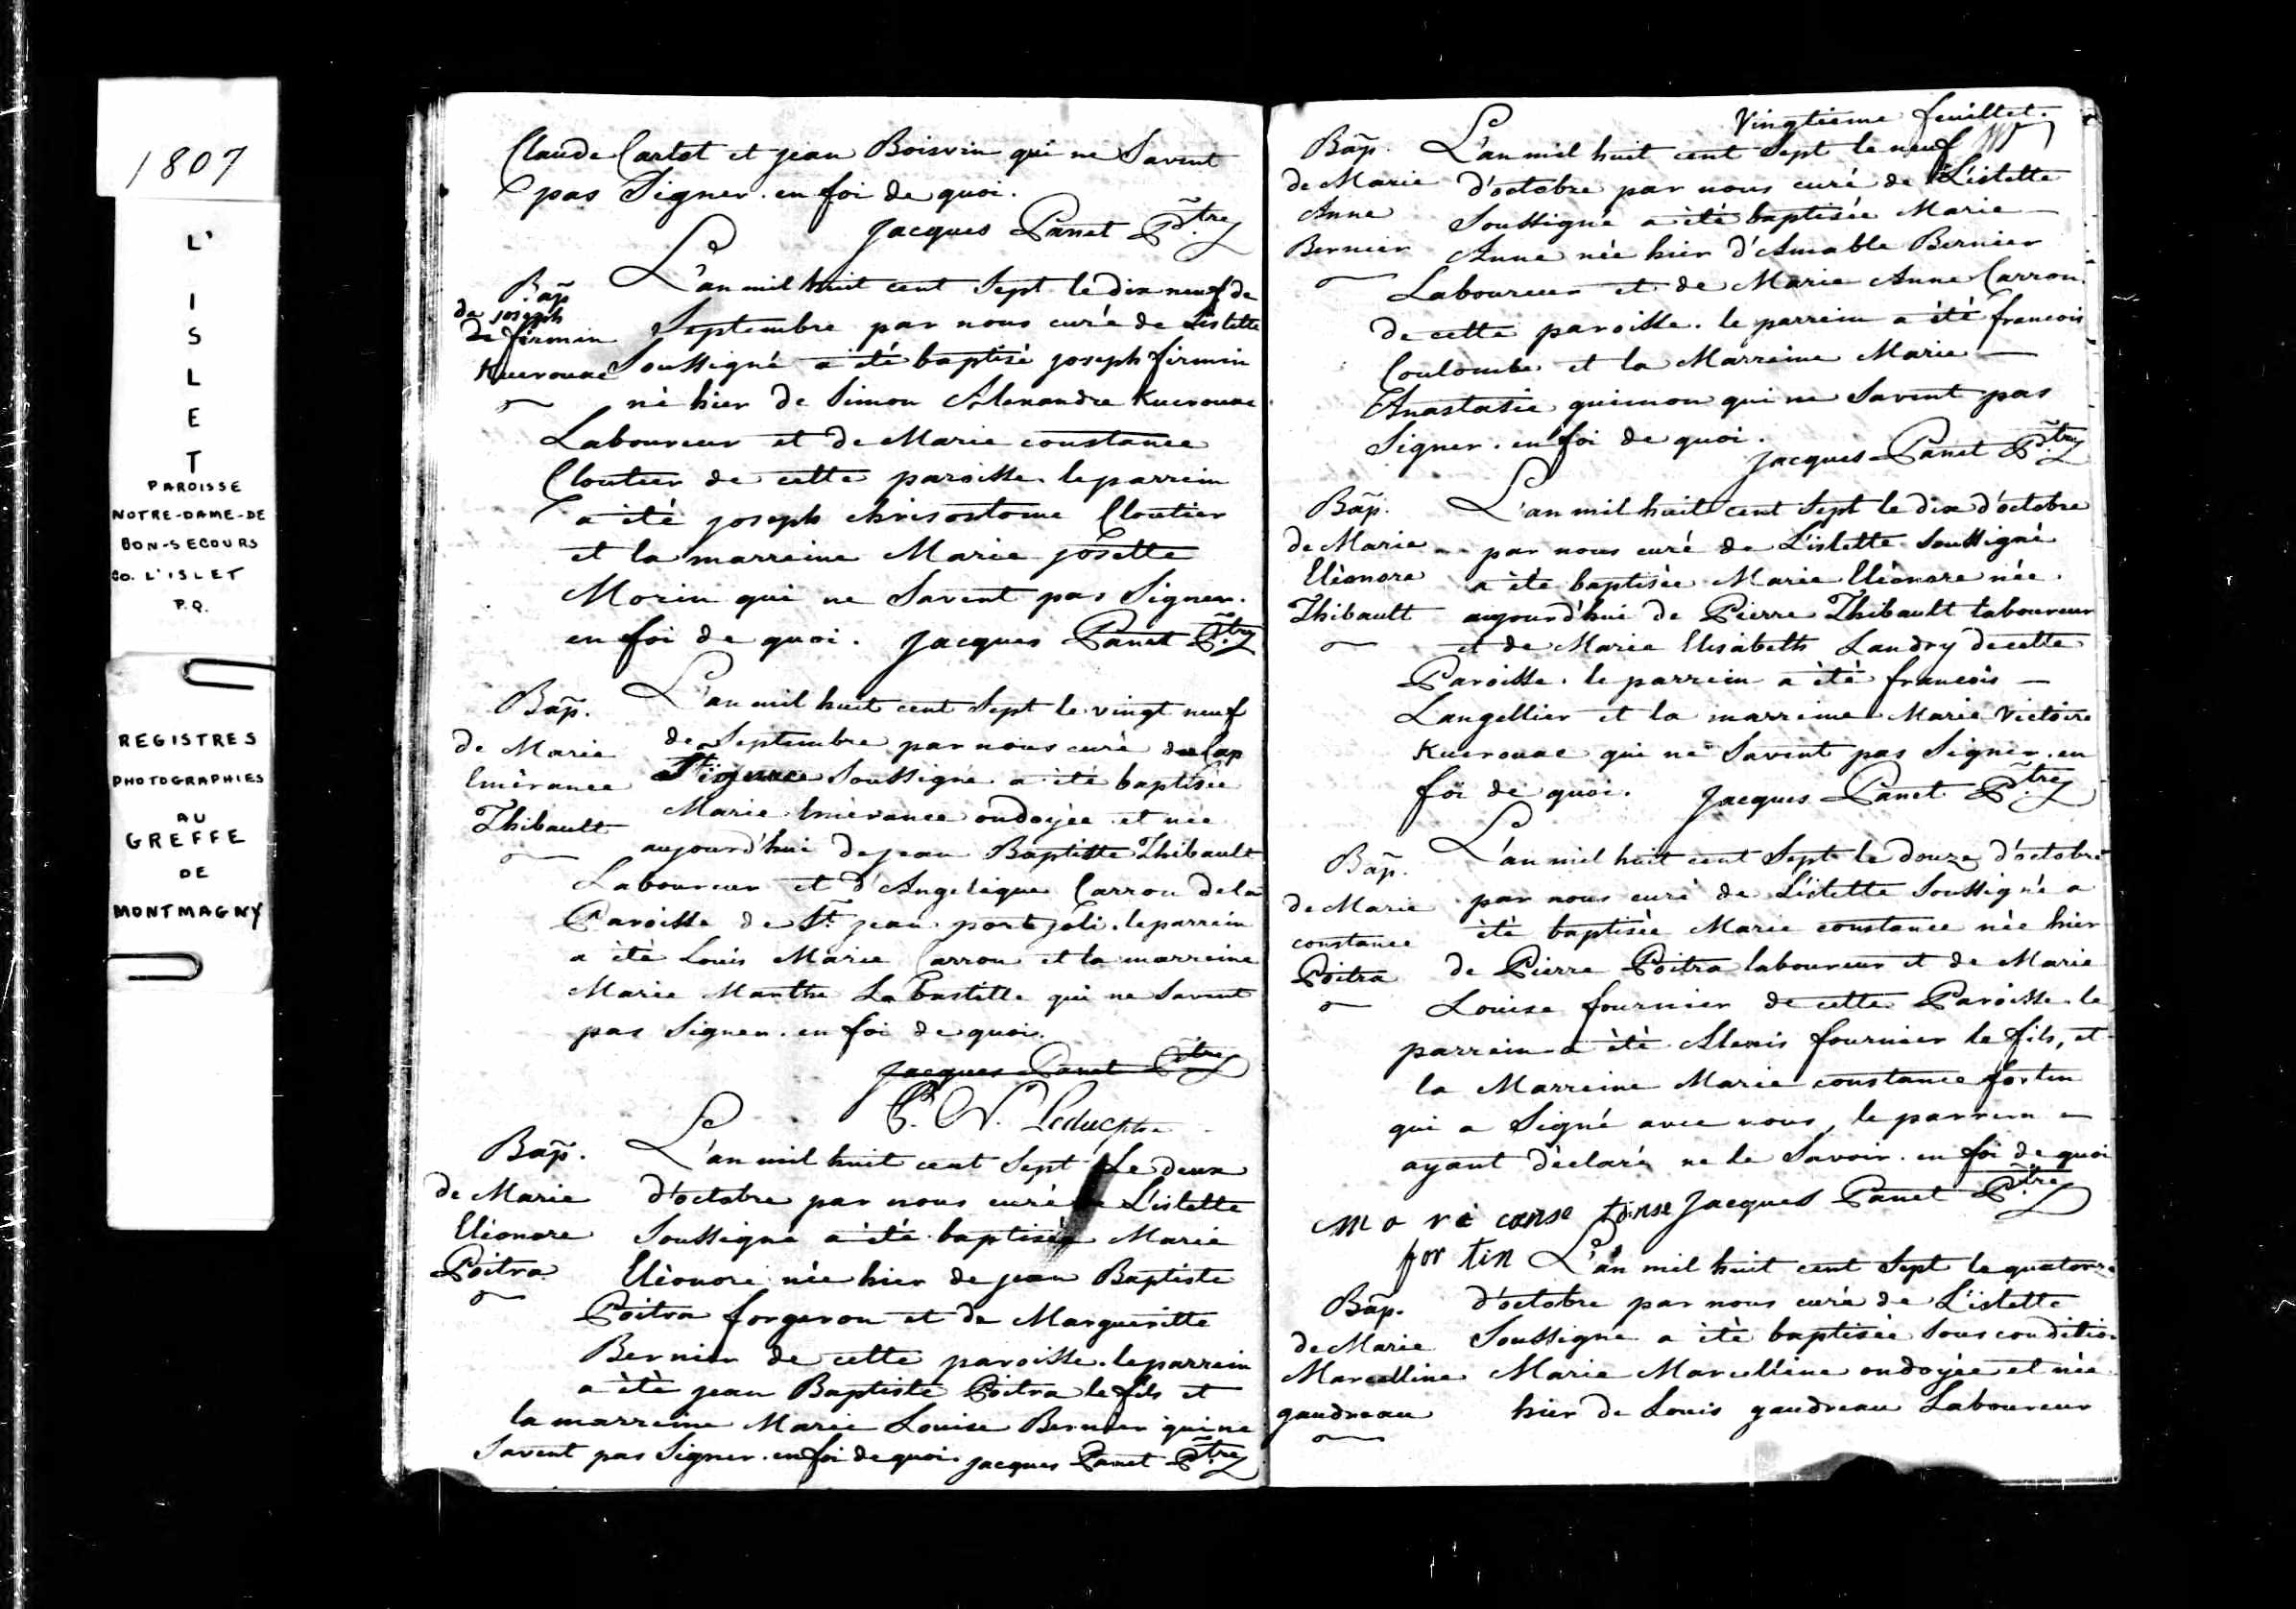 1807
L'
I
S
L
E
T
PAROISSE
NOTRE-DAME-DE
BON-SECOURS
CO. L'ISLET
P.Q.
REGISTRES
PHOTOGRAPHIES
AU
GREFFE
DE
MONTMAGNY
Claude Carlot et jean Boisvin qui ne Savent
pas Signer. en foi de quoi.
Jacques Panet Ptre
Bap̃
de joseph
de firmin
Kuerouac
L'an mil huit cent Sept le dix neuf de
Septembre par nous curé de Lislette
Soussigné a été baptisé joseph firmin
né hier de Simon Alexandre Kuerouac
Laboureur et de Marie constance
Cloutier de cette paroisse. le parrein
a été joseph chrisostome Cloutier
et la marreine Marie josette
Morin qui ne Savent pas Signer.
en foi de quoi. Jacques Panet Ptre
Bap̃.
de Marie
Emérance
Thibault
L'an mil huit cent Sept le vingt neuf
de Septembre par nous curé du Cap
St ignace Soussigné a été baptisée
Marie Emérance ondoyée et née
aujourd'hui de jean Baptiste Thibault
Laboureur et d'Angelique Carron de la
Paroisse de St jean port joli. le parrein
a été Louis Marie Carron et la marreine
Marie Marthe La bastille qui ne Savent
pas Signer. en foi de quoi.
Jacques Panet Ptre
Leduc ptre
Bap̃.
de Marie
Eléonore
Poitra
L'an mil huit cent Sept Le deux
d'octobre par nous curé de L'islette
Soussigné a été baptisée Marie
Eléonore née hier de jean Baptiste
Poitra forgeron et de Margueritte
Bernier de cette paroisse. le parrein
a été jean Baptiste Poitra le fils et
la marreine Marie Louise Bernier qui ne
Savent pas Signer. en foi de quoi. Jacques Panet Ptre
Vingtieme feuillet.
Bap̃.
de Marie
Anne
Bernier
L'an mil huit cent Sept le neuf
d'octobre par nous curé de L'islette
Soussigné a été baptisée Marie
Anne née hier d'Amable Bernier
Laboureur et de Marie Anne Carron
de cette paroisse. le parrein a été francois
Coulombe et la Marreine Marie
Anastasie guimon qui ne Savent pas
Signer. en foi de quoi.
Jacques Panet Ptre
Bap̃.
de Marie
Eléonore
Thibault
L'an mil huit cent Sept le dix d'octobre
par nous curé de L'islette Soussigné
a été baptisée Marie Eléonore née
aujourd'hui de Pierre Thibault laboureur
et de Marie Elisabeth Landry de cette
Paroisse. le parrein a été francois
Langellier et la marreine Marie Victoire
Kuerouac qui ne Savent pas Signer. en
foi de quoi. Jacques Panet Ptre
Bap̃.
de Marie
constance
Poitra
L'an mil huit cent Sept le douze d'octobre
par nous curé de L'islette Soussigné a
été baptisée Marie constance née hier
de Pierre Poitra laboureur et de Marie
Louise fournier de cette Paroisse. le
parrein a été Alexis fournier le fils, et
la Marreine Marie constance fortin
qui a Signé avec nous, le parrein
ayant déclaré ne le Savoir. en foi de quoi
ma ri conse tonse Jacques Panet Ptre
for tin
Bap̃.
de Marie
Marcelline
gaudreau
L'an mil huit cent Sept le quatorze
d'octobre par nous curé de L'islette
Soussigné a été baptisée Sous condition
Marie Marcelline ondoyée et née
hier de Louis gaudreau Laboureur